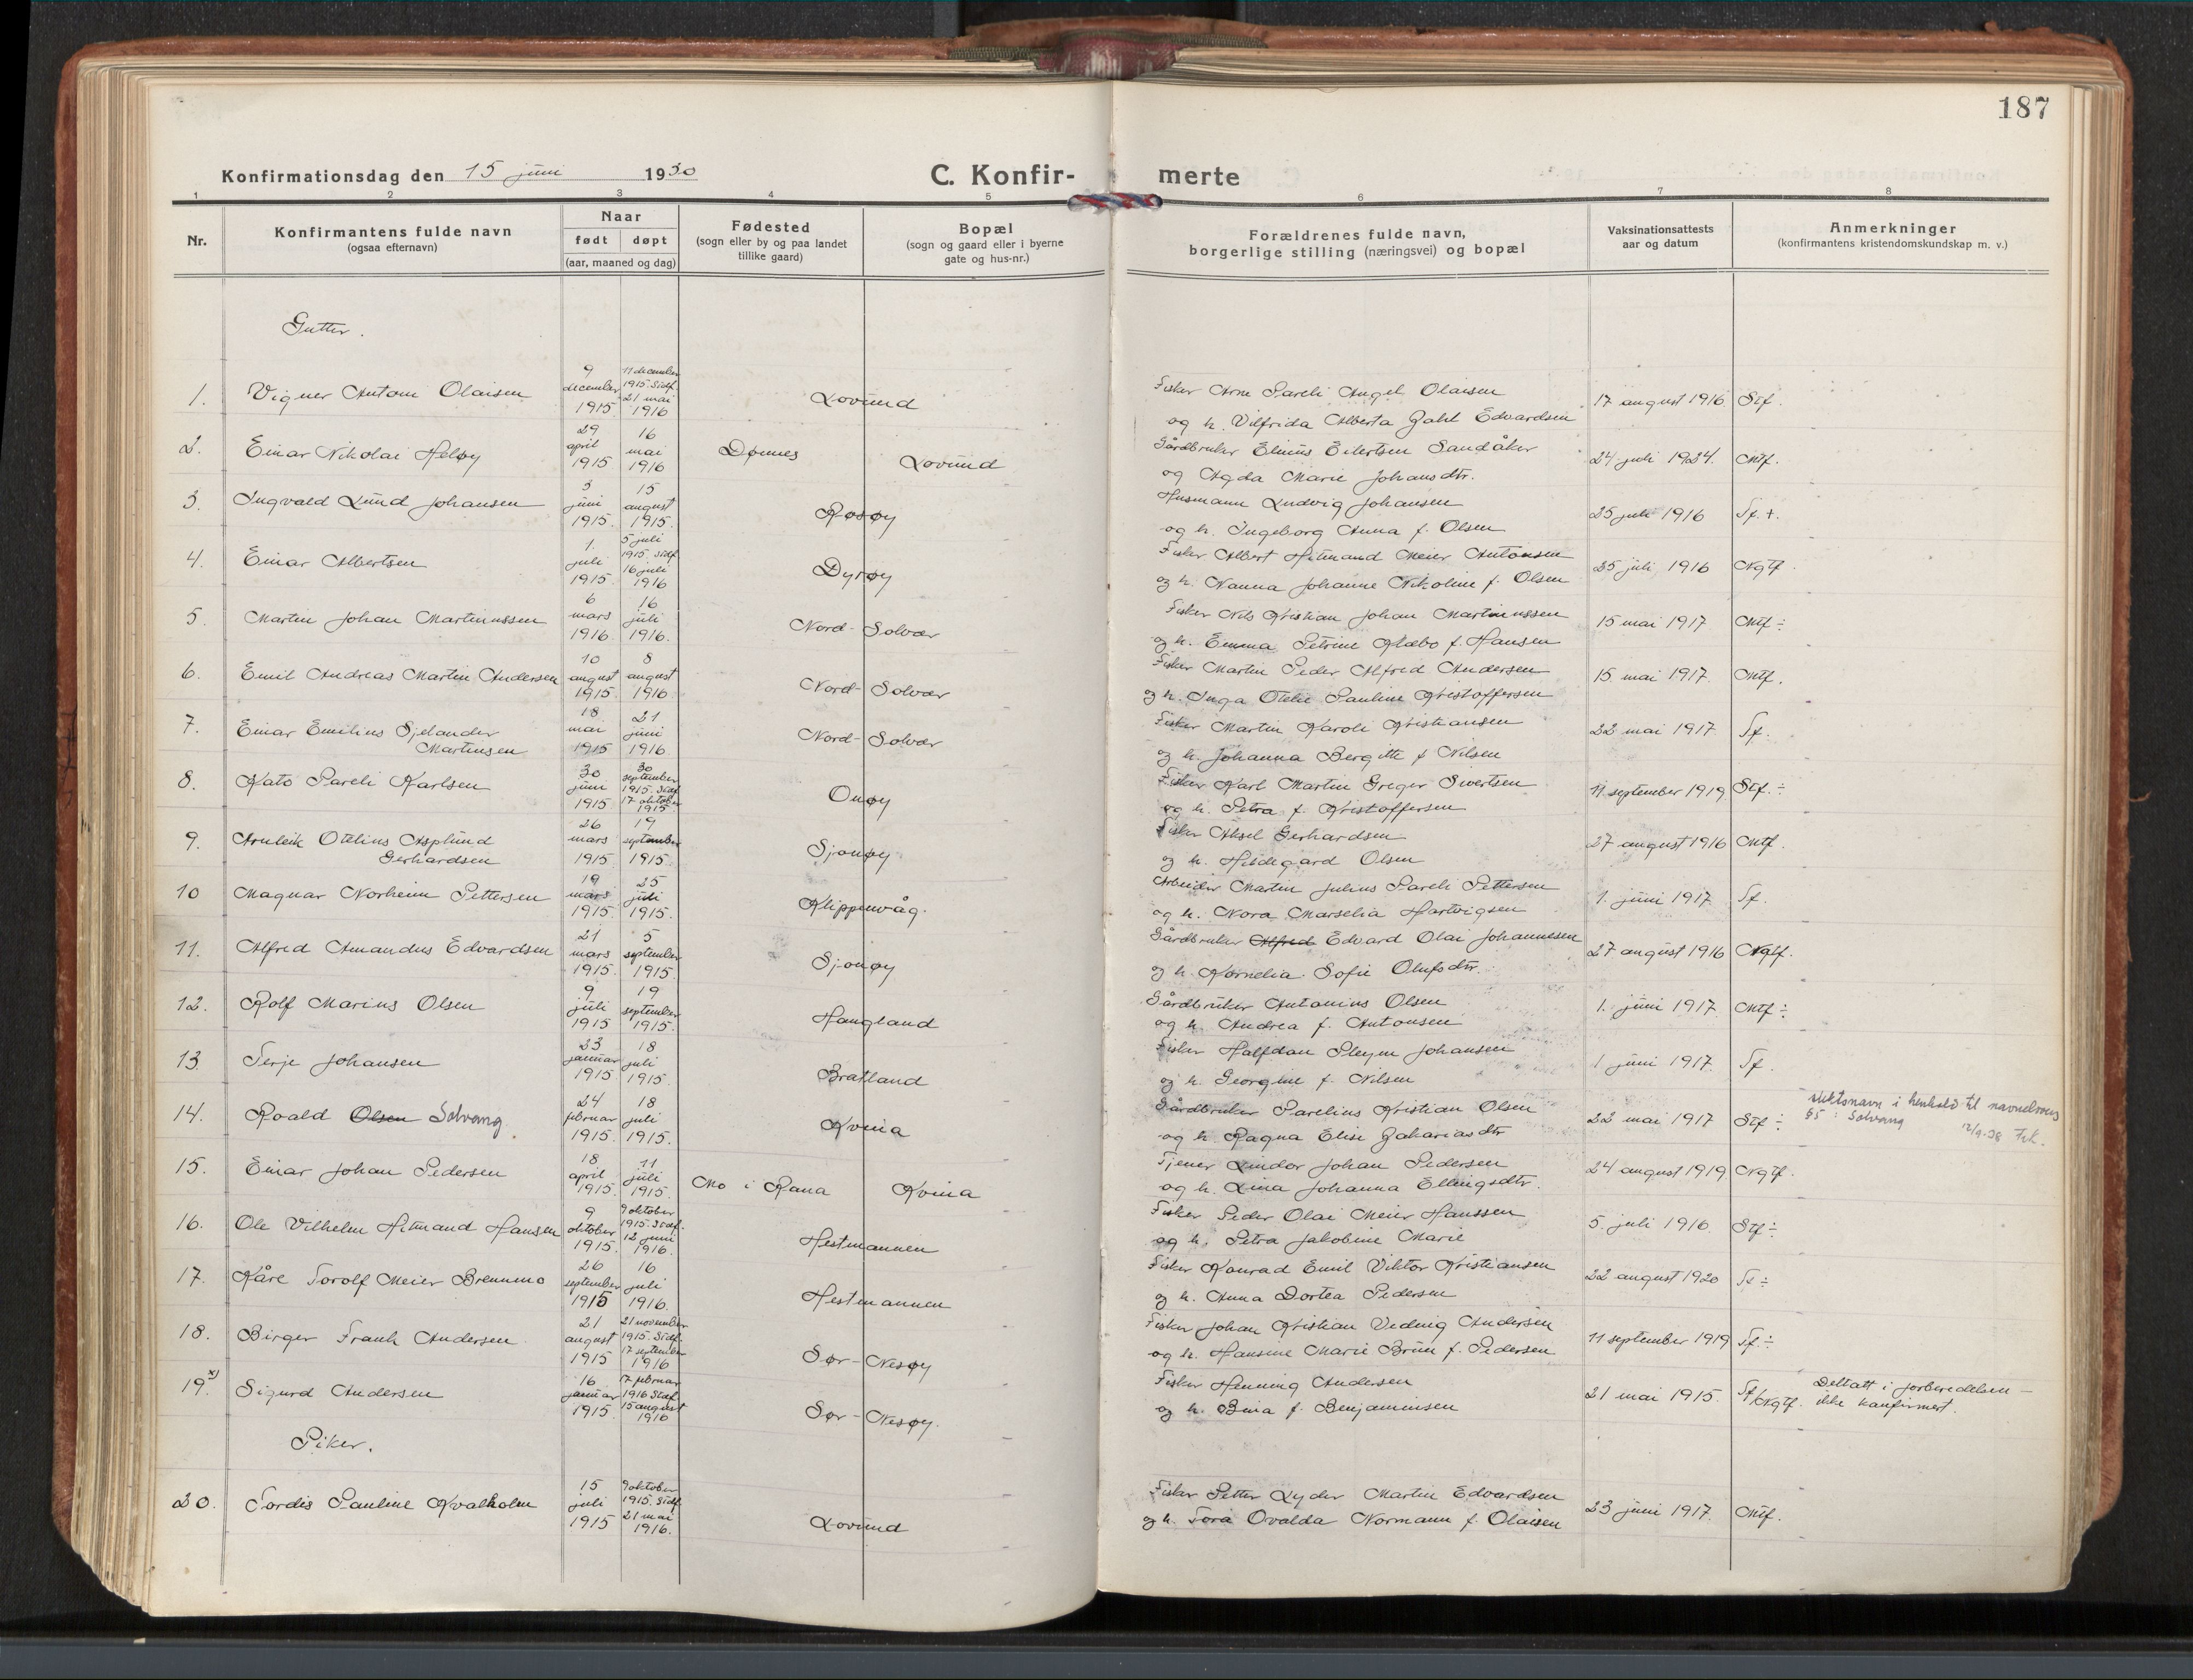 187
Konfirmationsdag den 15 juni 1930
C. Konfir- merte
1 2 3 4 5 6 7 8
Nr.
Konfirmantens fulde navn
(ogsaa efternavn)
Naar
født døpt
(aar, maaned og dag)
Fødested
(sogn eller by og paa landet
tillike gaard)
Bopæl
(sogn og gaard eller i byerne
gate og hus-nr.)
Forældrenes fulde navn,
borgerlige stilling (næringsvei) og bopæl
Vaksinationsattests
aar og datum
Anmerkninger
(konfirmantens kristendomskundskap m. v.)
Gutter.
1. Vigner Antoni Olaisen 9 december 1915 11 december 1915. 21 mai 1916 Lovund Fisker Arne Pareli Angel Olaisen
og h. Vilfrida Alberta Zahl Edvardsen 17 august 1916 Stf.
2. Einar Nikolai Heløy 29 april 1915 16 mai 1916 Dønnes Lovund Gårdbruker Elinus Eilertsen Sandåker
og Agda Marie Johansdtr. 24 juli 1924. Mtf.
3. Ingvald Lund Johansen 3 juni 1915. 15 august 1915. Rosøy Husmann Ludvig Johansen
og h. Ingeborg Anna f. Olsen 25 juli 1916 Sf. +.
4. Einar Albertsen 1. juli 1915. 5 juli 1915. 16 juli 1916 Dyrøy Fisker Albert Hitmand Meier Antonsen
og h. Nanna Johanne Nikoline f. Olsen 25 juli 1916 Ngtf.
5. Martin Johan Martinussen 6 mars 1916. 16 juli 1916. Nord-Solvær Fisker Nils Kristian Johan Martinussen
og h. Emma Petrine Klæbo f. Hansen 15 mai 1917 Mtf ÷
6. Emil Andreas Martin Andersen 10 august 1915 8 august 1916 Nord-Solvær Fisker Martin Peder Alfred Andersen
og h. Inga Otelie Pauline Kristoffersen 15 mai 1917. Mtf.
7. Einar Emilius Sjelander
Martinsen 18 mai 1915 21 juni 1916. Nord-Solvær Fisker Martin Karoli Kristiansen
og h. Johanna Bergitte f Nilsen 22 mai 1917. Sf.
8. Kato Pareli Karlsen 30 juni 1915 30 september 1915. 17 oktober 1915 Onøy Fisker Karl Martin Greger Sivertsen
og h. Petra f. Kristoffersen 11 september 1919 Stf. ÷
9. Arnleik Otelius Asplund
Gerhardsen 26 mars 1915 19 september 1915. Sjonøy Fisker Aksel Gerhardsen
og h. Hildegard Olsen 27 august 1916 Mtf.
10 Magnar Norheim Pettersen 19 mars 1915. 25 juli 1915. Klippenvåg. Arbeider Martin Julius Pareli Pettersen
og h. Nora Marselia Hartvigsen 1. juni 1917 Sf.
11. Alfred Amandus Edvardsen 21 mars 1915. 5 september 1915. Sjonøy Gårdbruker Alfred Edvard Olai Johannesen
og h. Kornelia Sofie Olufsdtr. 27 august 1916 Ngtf.
12. Rolf Marius Olsen 9 juli 1915 19 september 1915. Haugland Gårdbruker Antonius Olsen
og h. Andrea f. Antonsen 1. juni 1917. Mtf ÷
13. Terje Johansen 23 januar 1915 18 juli 1915. Bratland Fisker Halfdan Pleym Johansen
og h. Georgine f. Nilsen 1 juni 1917. Sf.
14. Roald Olsen Solvang 24 februar 1915. 18 juli 1915. Kvina Gårdbruker Parelius Kristian Olsen
og h. Ragna Elise Zakariasdtr 22 mai 1917 Stf ÷ slektsnavn i henhold til navnelovens
§5: Solvang 12/9-38
15. Einar Johan Pedersen 18 april 1915. 11 juli 1915. Mo i Rana Kvina Tjener Lindor Johan Pedersen
og h. Lina Johanna Ellingsdtr. 24 august 1919 Ngtf.
16. Ole Vilhelm Hitmand Hansen 9 oktober 1915. 9 oktober 1915. 12 juni 1916. Hestmannen Fisker Peder Olai Meier Hanssen
og h. Petra Jakobine Marie 5. juli 1916. Stf ÷
17. Kåre Torolf Meier Brennmo 26 september 1915 16 juli 1916. Hestmannen Fisker Konrad Emil Viktor Kristiansen
og h. Anna Dortea Pedersen 22 august 1920 Sf ÷
18. Birger Frank Andersen 21 august 1915 21 november 1915. 17 september 1916 Sør-Nesøy Fisker Johan Kristian Vednig Andersen
og h. Hansine Marie Brun f. Pedersen 11 september 1919 Sf. ÷
19. x) Sigurd Andersen 16 januar 1915 17 februar 1916 15 august 1916 Sør-Nesøy. Fisker Henning Andersen
og h. Bina f. Benjaminsen 21 mai 1915. Sf/Ngtf. Deltatt i forberedelsen –
ikke konfirmert.
Piker.
20. Tordis Pauline Kvalholm 15 juli 1915 9 oktober 1915. 21 mai 1916. Lovund Fisker Petter Lyder Martin Edvardsen
og h. Tora Ovalda Normann f. Olaisen 23 juni 1917. Mtf.